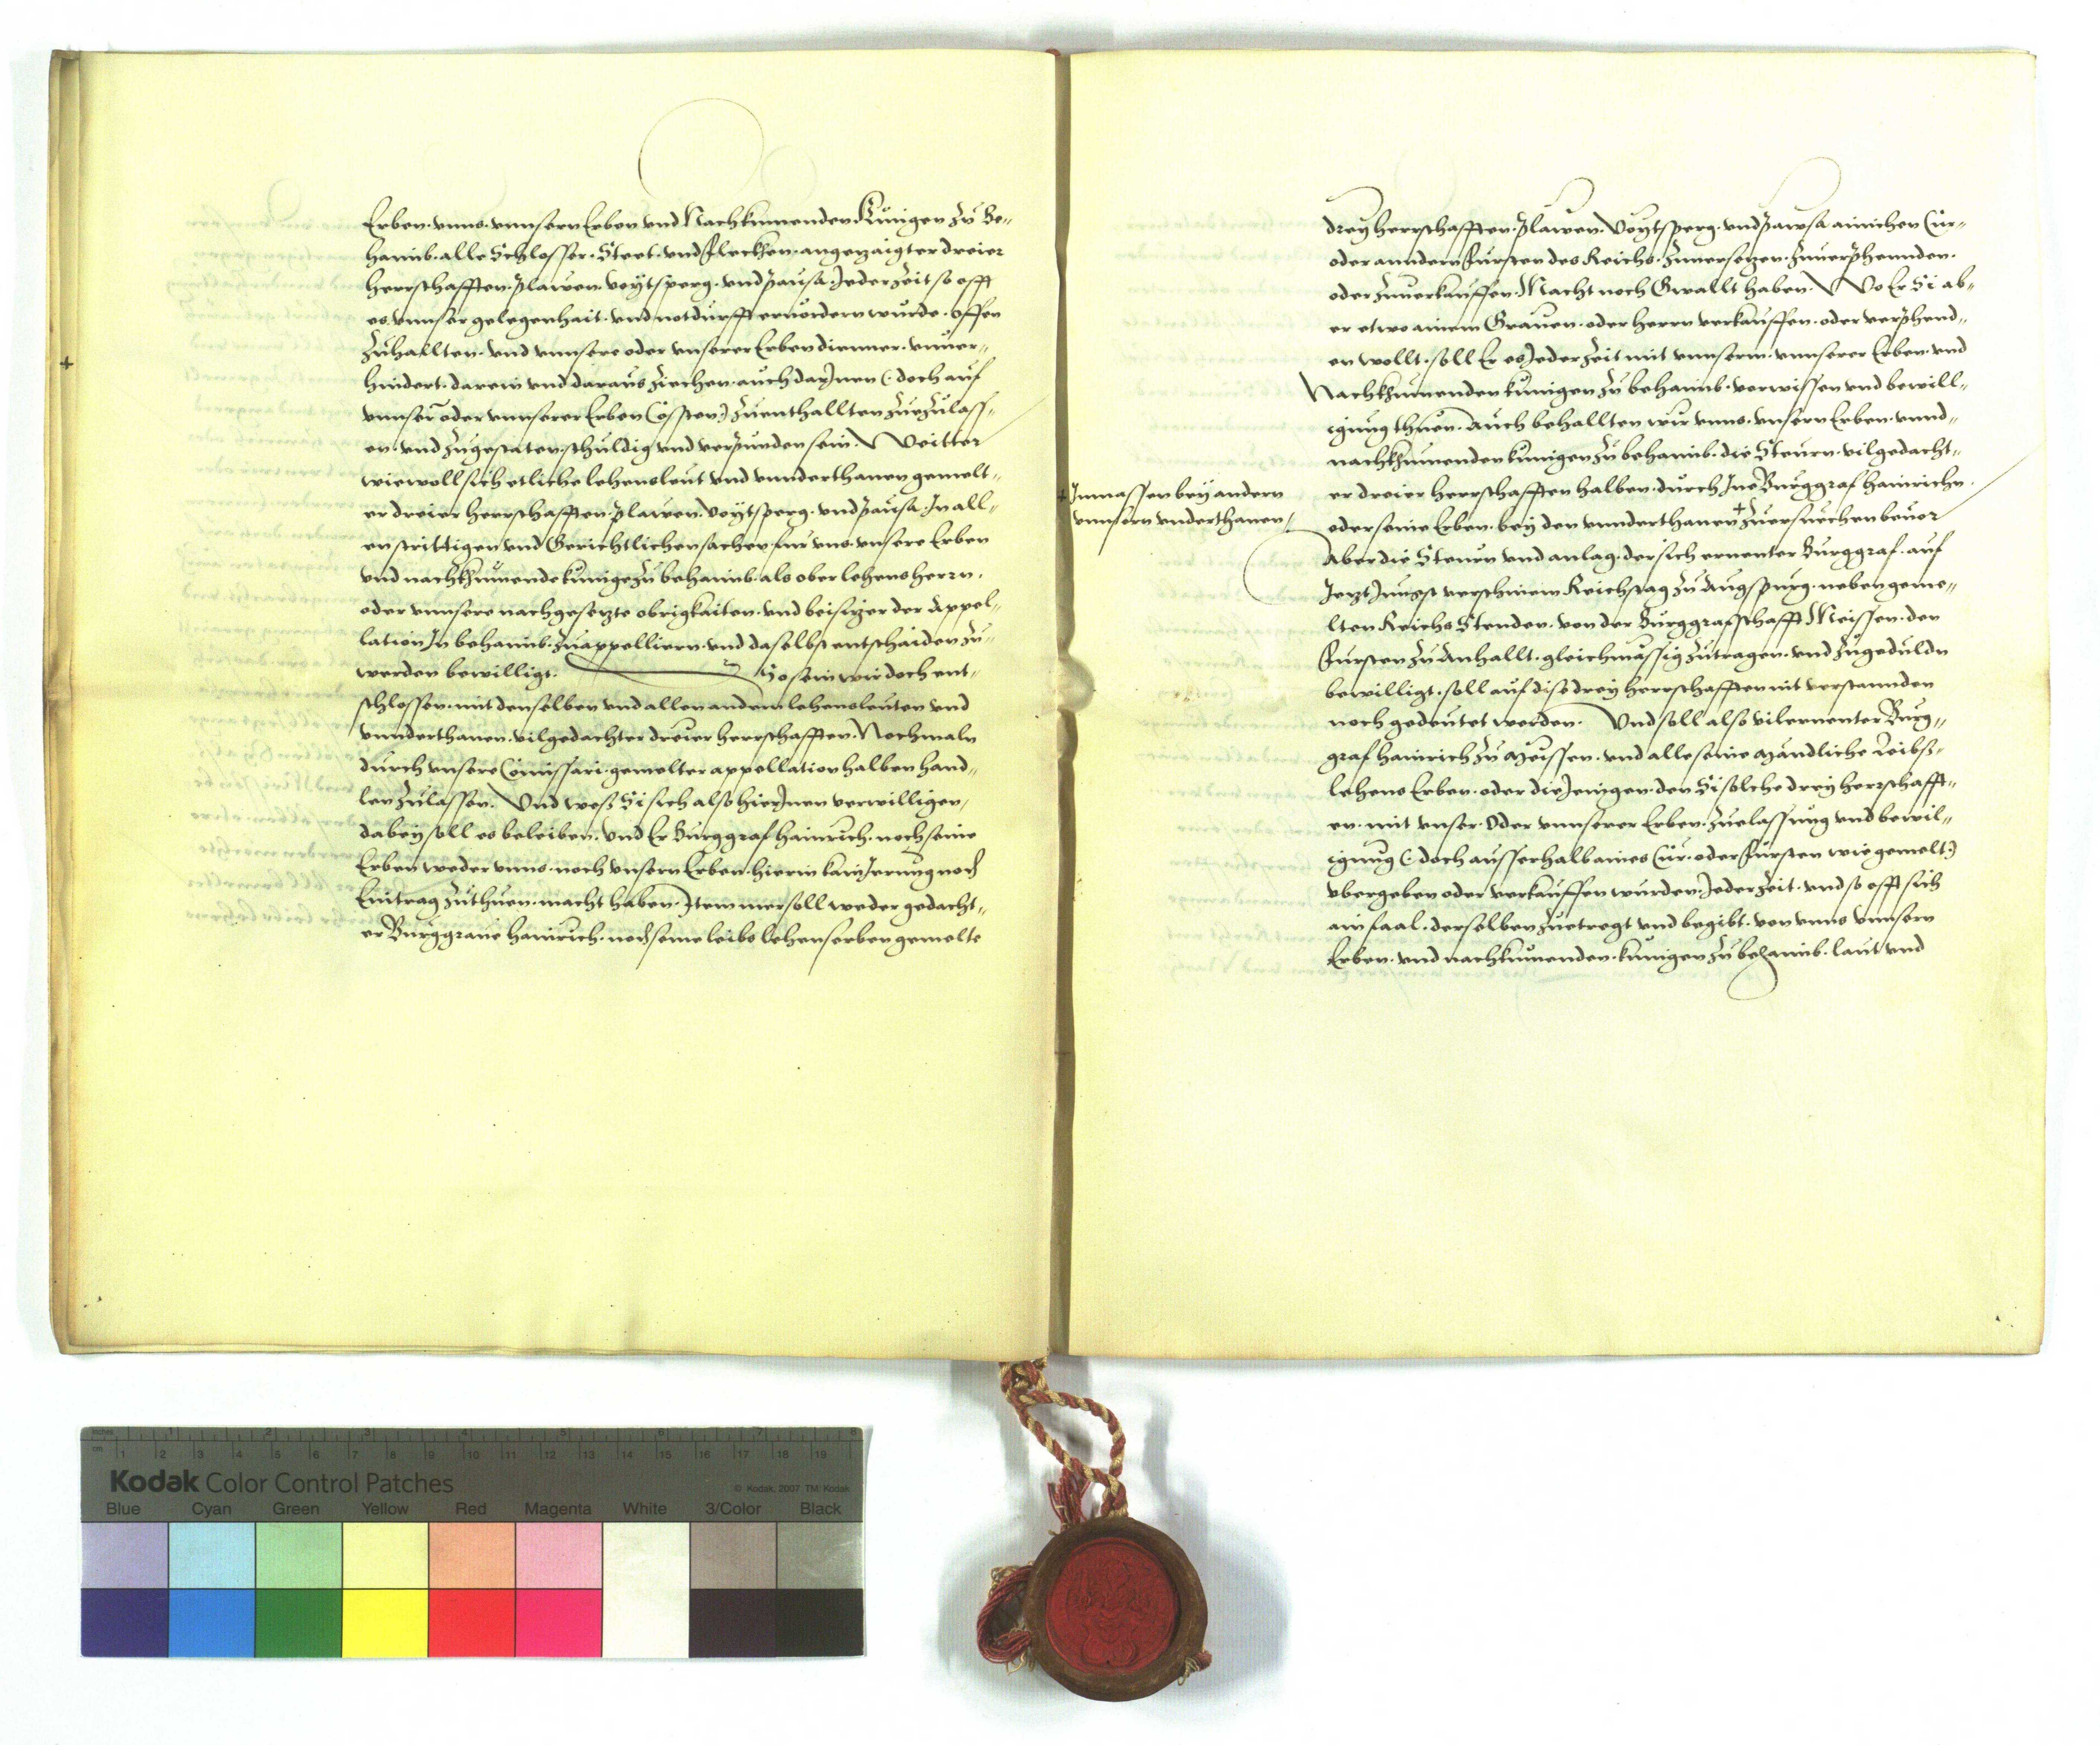 Erben. vnns. vnnsern Erben vnd Nachkumenden Künigen zu Be„
haimb. alle Schlosser. Stett. vnd Flecken. angezaigter dreier
herrschafften. Plawen. Voytsperg. vnd Pausa. Jeder Zeit so offt
es vnnser gelegenhait. vnd notdurfft eruordern wurde. offen
Zuhallten. vnd vnnsere oder vnserer Erben dienner. vnuer„
hindert. darein vnd daraus Ziechen. auch darJnen (: doch auf
vnnser oder vnnserer Erben Cossten:) Zuenthallten Zuezulass„
en. vnd Zugestaten. schuldig vnd verpunden sein. Weitter
wiewoll sich etliche lehensleut vnd vnnderthanen gemelt„
er dreier herrschafften. Plawen. Voytsperg. vnd Pausa. Jn all„
en strittigen vnd Gerichtlichen sachen. fur vns. vnsere Erben
vnd nachkhumende kunige zu behaimb. als ober lehensherrn.
oder vnnsere nachgesetzte obrigkaiten. vnd beisizer der Appel„
lation Jn behaimb. Zuappelliern. vnd daselbst entschaiden Zu„
werden bewilligt. So sein wir doch ent„
schlossen. mit denselben vnd allen andern lehensleuten vnd
vnnderthanen. vilgedachter dreier herrschafften. Nochmaln
durch vnsere Comissari. gemelter appellation halben hand„
len Zulassen. Vnd wess Si sich also hierJnen verwilligen,
dabey soll es beleiben. vnd Er Burggraf hainrich. noch seine
Erben weder vnns. noch vnsern Erben. hierin kain Jerung noch
Eintrag Zuthuen. macht haben. Jtem mer soll weder gedacht„
er Burggraue hainrich. noch seine leibs lehenserben gemelte
drey herrschafften. Plawen. Voytsperg. vnd Pausa ainichen Cur„
oder anndern Fursten des Reichs. Zuuersetzen. Zuuerphennden.
oder Zuuerkauffen. Macht noch Gwallt haben. Wo Er Si ab„
er etwo ainem Grauen. oder herrn verkauffen. oder verphend„
en wollt. soll Er es Jeder Zeit mit vnnserm. vnnserer Erben. vnd
Nachkhumenden kunigen Zu behaimb. verwissen vnd bewill„
igung thuen. Auch behallten wir vnns. vnsern Erben. vnnd„
nachkhumenden kunigen Zu behaimb. die Steurn. vilgedacht„
er dreier herrschafften halben. durch Jne Burggraf hainrichn.
oder seine Erben. bey den vnnderthanen + Zuersuechen beuor
+ Jnmassen bey andern
vnnsern vnderthanen /
Aber die Steurn vnd anlag. der sich ernenter Burggraf. auf
Jetzt Jungst verschinem Reichstag zu Augspurg. neben geme„
lten Reichs Stenden. von der Burggrafschafft Meissen. den
Fursten zu Anhallt. gleichmässig zutragen. vnd zugeduldn
bewilligt. soll auf dise drey herrschafften nit verstannden
noch gedeutet werden. Vnd soll also vilernenter Burg„
graf hainrich zu Meissen. vnd alle seine Mandliche Leibs„
lehens Erben. oder die Jenigen. den Si solche drey herrschafft„
en. mit vnser. Oder vnnserer Erben. Zuelassung vnd bewil„
igung (: doch ausserhalb aines Cur. oder Fursten wie gemelt:)
vbergeben oder verkauffen wurden. Jeder Zeit. vnd so offt sich
ain faal. derselben Zuetregt vnd begibt. von vnns vnnsern
Erben. vnd nachkumenden. kunigen Zu behaimb. laut vnd
Kodak Color Control Patches
© Kodak, 2007 TM: Kodak
Blue Cyan Green Yellow Red Magenta White 3/Color Black